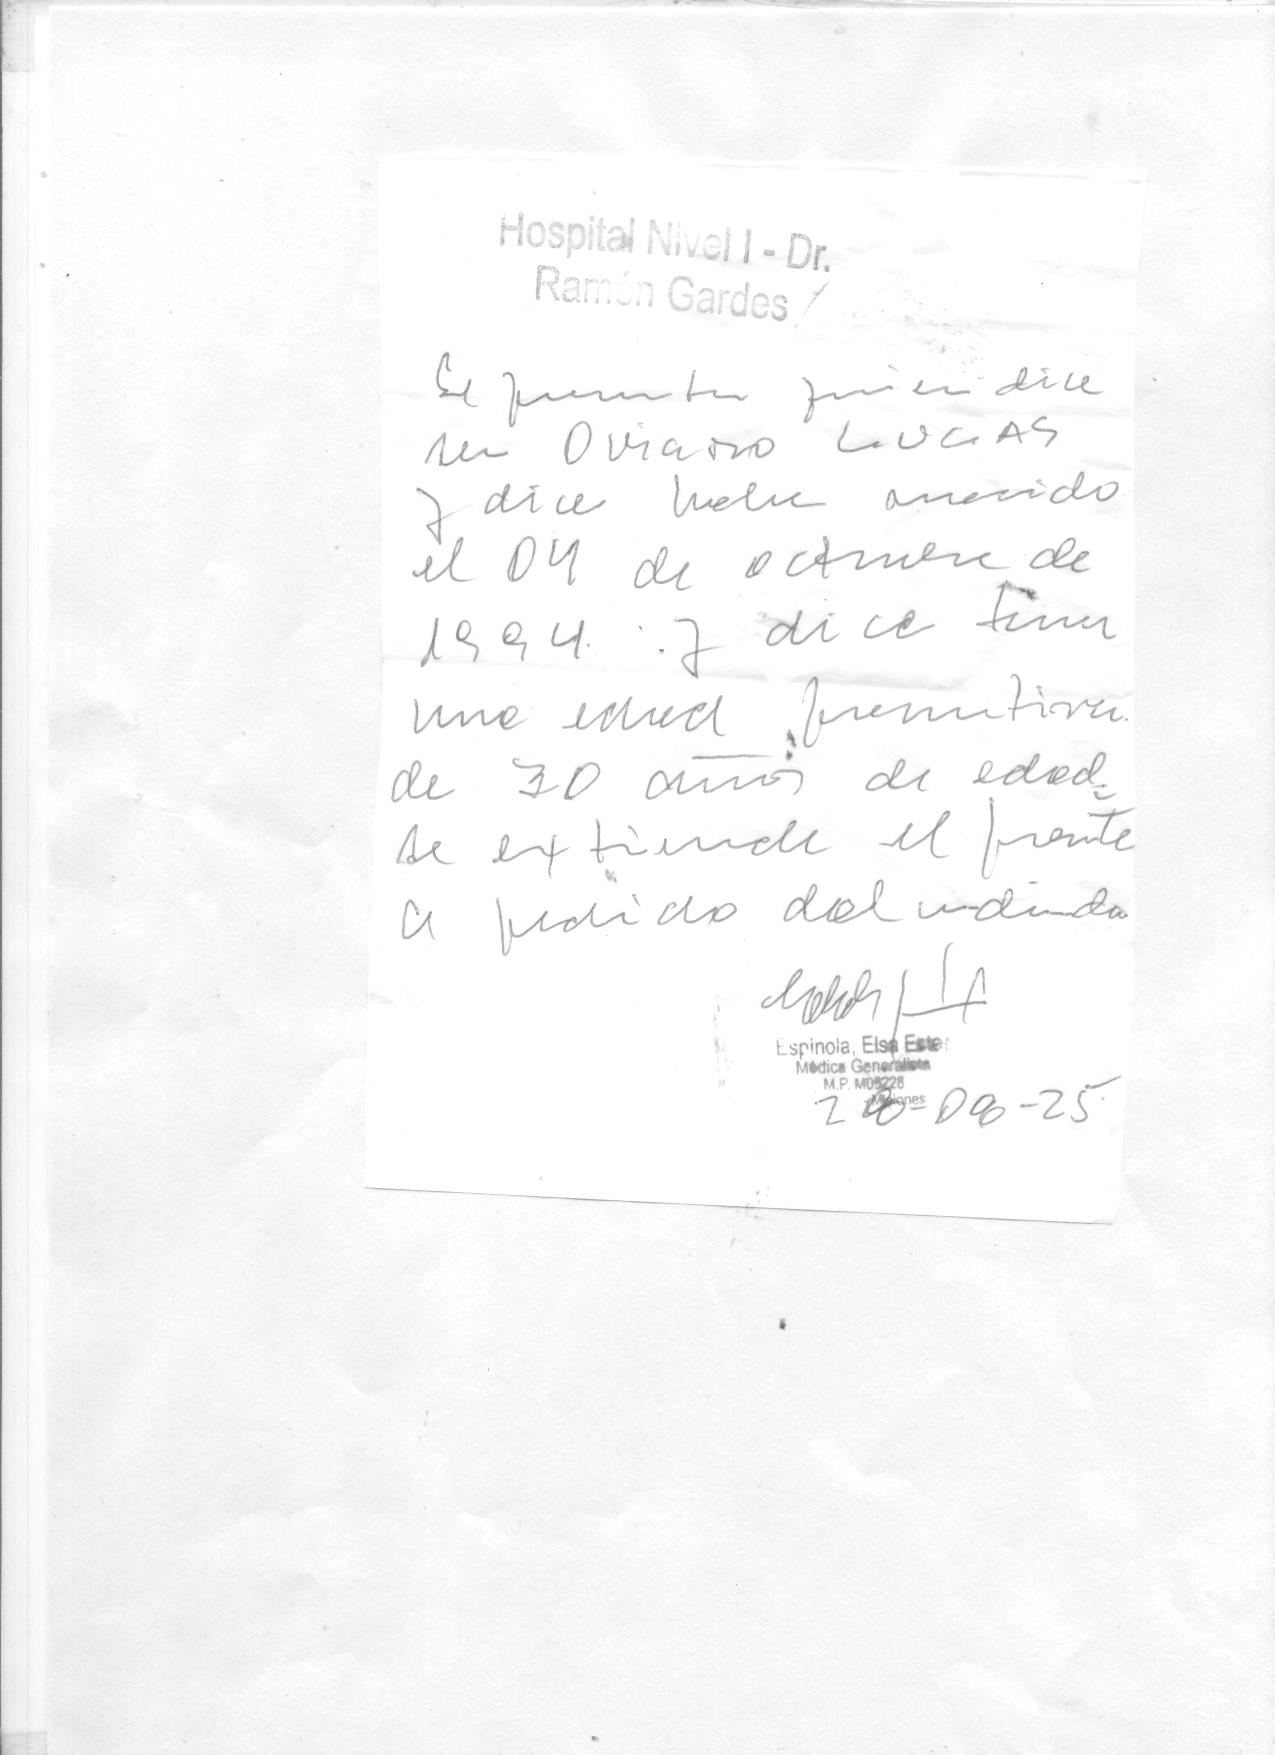 Hospital Nivel I - Dr.
Ramón Gardes
Se presenta quien dice
ser Oviano LUCAS
y dice haber nacido
el 04 de octubre de
1994. y dice tener
una edad presuntiva
de 30 años de edad.
se extiende el presente
a pedido del
Espinola, Elsa Ester
Médica Generalista
M.P. M05228
Misiones
28-08-25